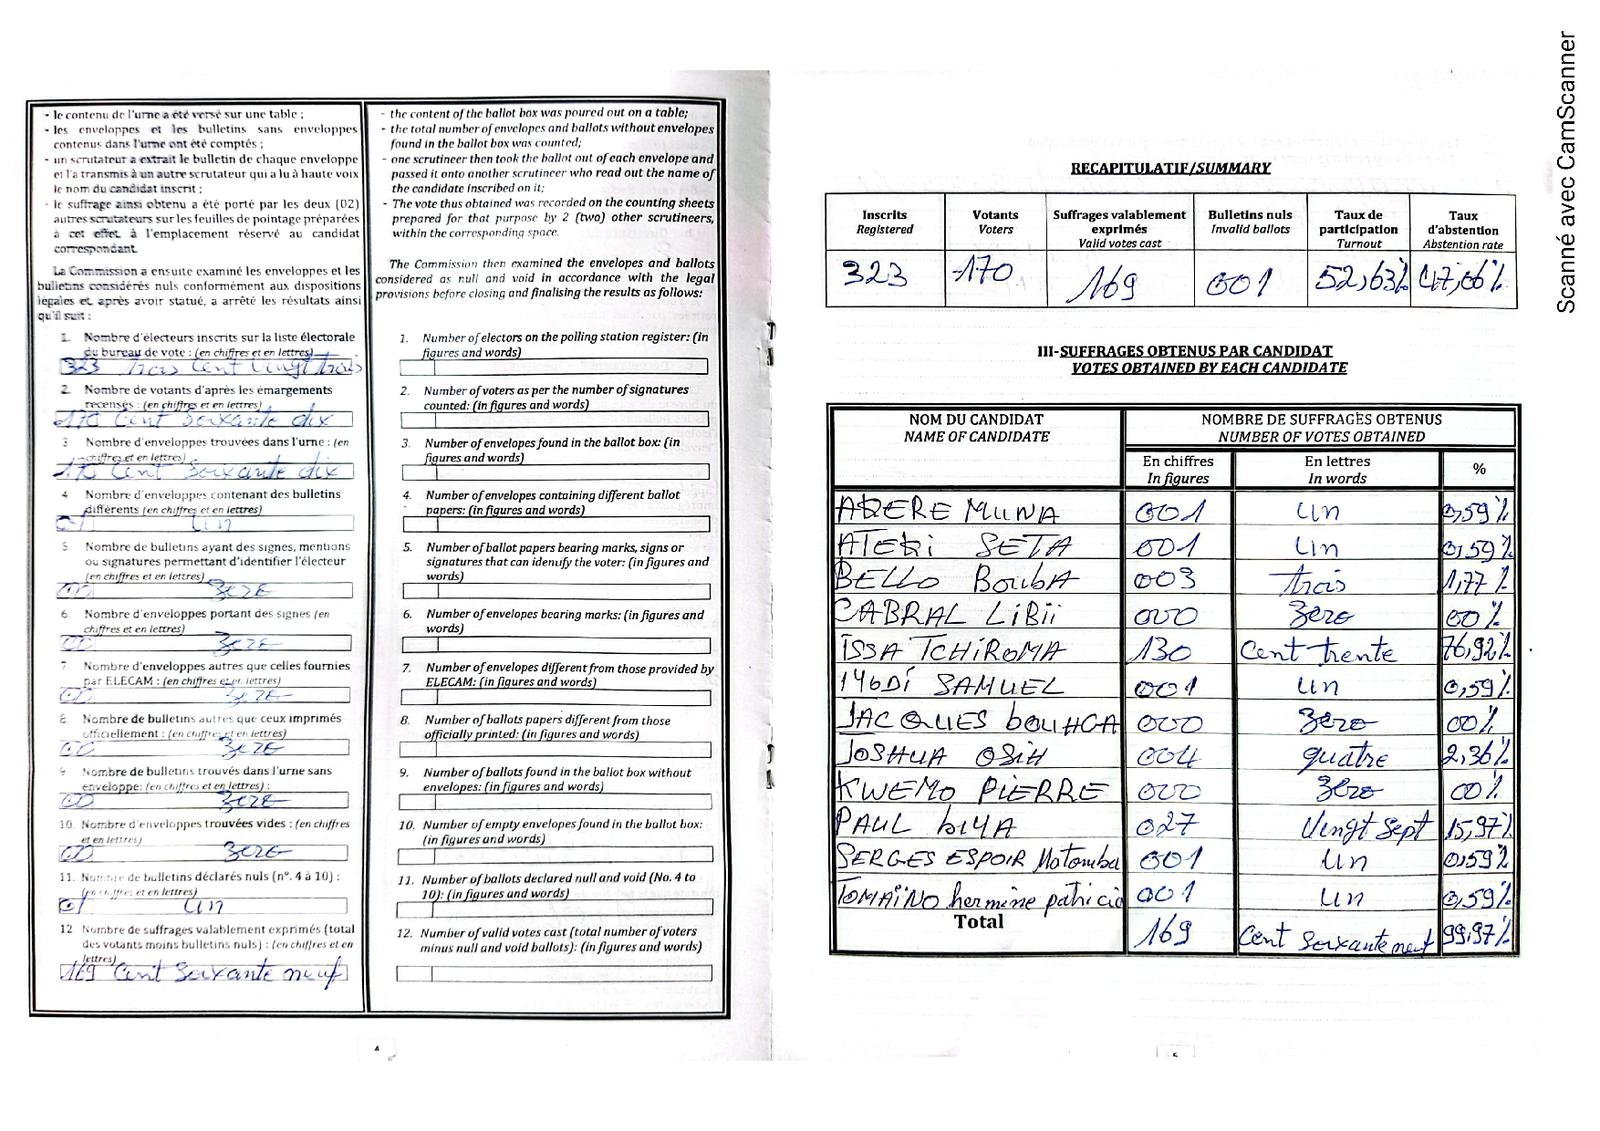 - le contenu de l'urne a été versé sur une table ;
- les enveloppes et les bulletins sans enveloppes
contenus dans l'urne ont été comptés ;
- un scrutateur a extrait le bulletin de chaque enveloppe
et l'a transmis à un autre scrutateur qui a lu à haute voix
le nom du candidat inscrit ;
- le suffrage ainsi obtenu a été porté par les deux (02)
autres scrutateurs sur les feuilles de pointage préparées
à cet effet à l'emplacement réservé au candidat
correspondant.
La Commission a ensuite examiné les enveloppes et les
bulletins considérés nuls conformément aux dispositions
légales et après avoir statué, a arrêté les résultats ainsi
qu'il suit :
1. Nombre d'électeurs inscrits sur la liste électorale
du bureau de vote : (en chiffres et en lettres)
323 trois cent vingt trois
2. Nombre de votants d'après les émargements
recensés : (en chiffres et en lettres)
170 Cent Soixante dix
3 Nombre d'enveloppes trouvées dans l'urne : (en
chiffres et en lettres)
170 Cent Soixante dix
4 Nombre d'enveloppes contenant des bulletins
différents (en chiffres et en lettres)
01 Un
5 Nombre de bulletins ayant des signes, mentions
ou signatures permettant d'identifier l'électeur
(en chiffres et en lettres)
00 Zero
6 Nombre d'enveloppes portant des signes (en
chiffres et en lettres)
00 Zero
7 Nombre d'enveloppes autres que celles fournies
par ELECAM : (en chiffres et en lettres)
00 Zero
8. Nombre de bulletins autres que ceux imprimés
officiellement : (en chiffres et en lettres)
00 Zero
9 Nombre de bulletins trouvés dans l'urne sans
enveloppe: (en chiffres et en lettres) :
00 Zero
10. Nombre d'enveloppes trouvées vides : (en chiffres
et en lettres)
00 Zero
11. Nombre de bulletins déclarés nuls (n°. 4 à 10) :
(en chiffres et en lettres)
01 Un
12 Nombre de suffrages valablement exprimés (total
des votants moins bulletins nuls) : (en chiffres et en
lettres)
169 Cent Soixante neuf
4
- the content of the ballot box was poured out on a table;
- the total number of envelopes and ballots without envelopes
found in the ballot box was counted;
- one scrutineer then took the ballot out of each envelope and
passed it onto another scrutineer who read out the name of
the candidate inscribed on it;
- The vote thus obtained was recorded on the counting sheets
prepared for that purpose by 2 (two) other scrutineers,
within the corresponding space.
The Commission then examined the envelopes and ballots
considered as null and void in accordance with the legal
provisions before closing and finalising the results as follows:
1. Number of electors on the polling station register: (in
figures and words)
2. Number of voters as per the number of signatures
counted: (in figures and words)
3. Number of envelopes found in the ballot box: (in
figures and words)
4. Number of envelopes containing different ballot
papers: (in figures and words)
5. Number of ballot papers bearing marks, signs or
signatures that can identify the voter: (in figures and
words)
6. Number of envelopes bearing marks: (in figures and
words)
7. Number of envelopes different from those provided by
ELECAM: (in figures and words)
8. Number of ballots papers different from those
officially printed: (in figures and words)
9. Number of ballots found in the ballot box without
envelopes: (in figures and words)
10. Number of empty envelopes found in the ballot box:
(in figures and words)
11. Number of ballots declared null and void (No. 4 to
10): (in figures and words)
12. Number of valid votes cast (total number of voters
minus null and void ballots): (in figures and words)
RECAPITULATIF/SUMMARY
Inscrits Votants Suffrages valablement Bulletins nuls Taux de Taux
Registered Voters exprimés Invalid ballots participation d'abstention
Valid votes cast Turnout Abstention rate
323 170 169 001 52,63% 47,06%
III-SUFFRAGES OBTENUS PAR CANDIDAT
VOTES OBTAINED BY EACH CANDIDATE
NOM DU CANDIDAT NOMBRE DE SUFFRAGES OBTENUS
NAME OF CANDIDATE NUMBER OF VOTES OBTAINED
En chiffres En lettres %
In figures In words
AKERE MUNA 001 Un 0,59%
ATEKI SETA 001 Un 0,59%
BELLO BouBA 003 trois 1,77%
CABRAL LiBii 000 Zero 00%
ISSA TCHIROMA 130 Cent trente 76,92%
IYODI SAMUEL 001 Un 0,59%
JACQUES bOUHGA 000 Zero 00%
JOSHUA OSIH 004 quatre 2,36%
KWEMO PIERRE 000 Zero 00%
PAUL bIYA 027 Vingt Sept 15,97%
SERGES ESPOIR Matomba 001 Un 0,59%
TOMAÏNO hermine patricia 001 Un 0,59%
Total 169 Cent Soixante neuf 99,97%
5
Scanné avec CamScanner